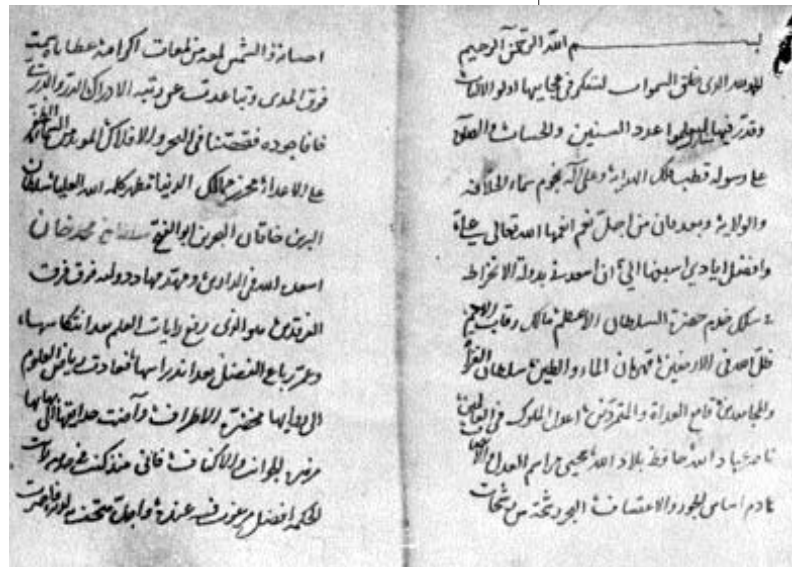 بسم الله الرحمن الرحيم
الحمد لله الذى خلق السموات ليتفكر فى عجايبها اولو الالباب
وقدر فيها ليعلموا عدد السنين والحساب والصلوة
على رسوله قطب فلك الهداية وعلى آله نجوم سماء الخلافة
والولاية وبعد فان من اجل نعم انعمها الله تعالى على
وافضل ايادى اسبغها الى ان اسعدنى بدولة الانخراط
فى سلك خدم حضرة السلطان الاعظم مالك رقاب الامم
ظل الله فى الارضين قهرمان الماء والطين سلطان الغزاة
والمجاهدين قامع العداة والمتمردين اعدل الملوك فى العالمين
ناصر عباد الله حافظ بلاد الله محيى مراسم العدل والانصاف
هادم اساس الجور والاعتساف البحر رشحة من رشحات
احسانه والشمس لمعة من لمعات اكرامه عطاياه
فوق المدى وتباعدت عن رتبة الادراك
فاقا جوده فى البحر والافلاك المويد من السماء
على الاعداء محرز ممالك الدنيا مظهر كلمة الله العليا سلطان
البرين خاقان البحرين ابو الفتح سلطان محمد خان
اسعده الله فى الدارين ومهد مهاد دولته فوق فرق
الفرقدين هو الذى رفع رايات العلم بعد انتكاسها
وعمر رباع الفضل بعد اندراسها فعادت رياض العلوم
الى روائها مخضرة الاطراف وآضت حدايقها الى بهائها
الجوانب والاكناف فانى منذ كنت
الحكمة افضل مرغوب فيه عنده واجل